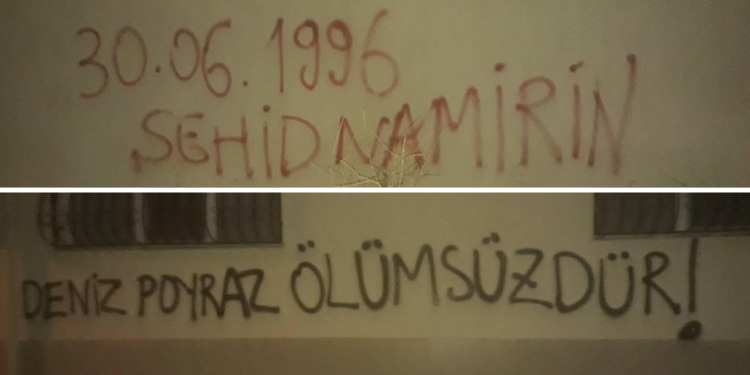 30.06.1996
ŞEHİD NAMİRİN
DENİZ POYRAZ ÖLÜMSÜZDÜR!